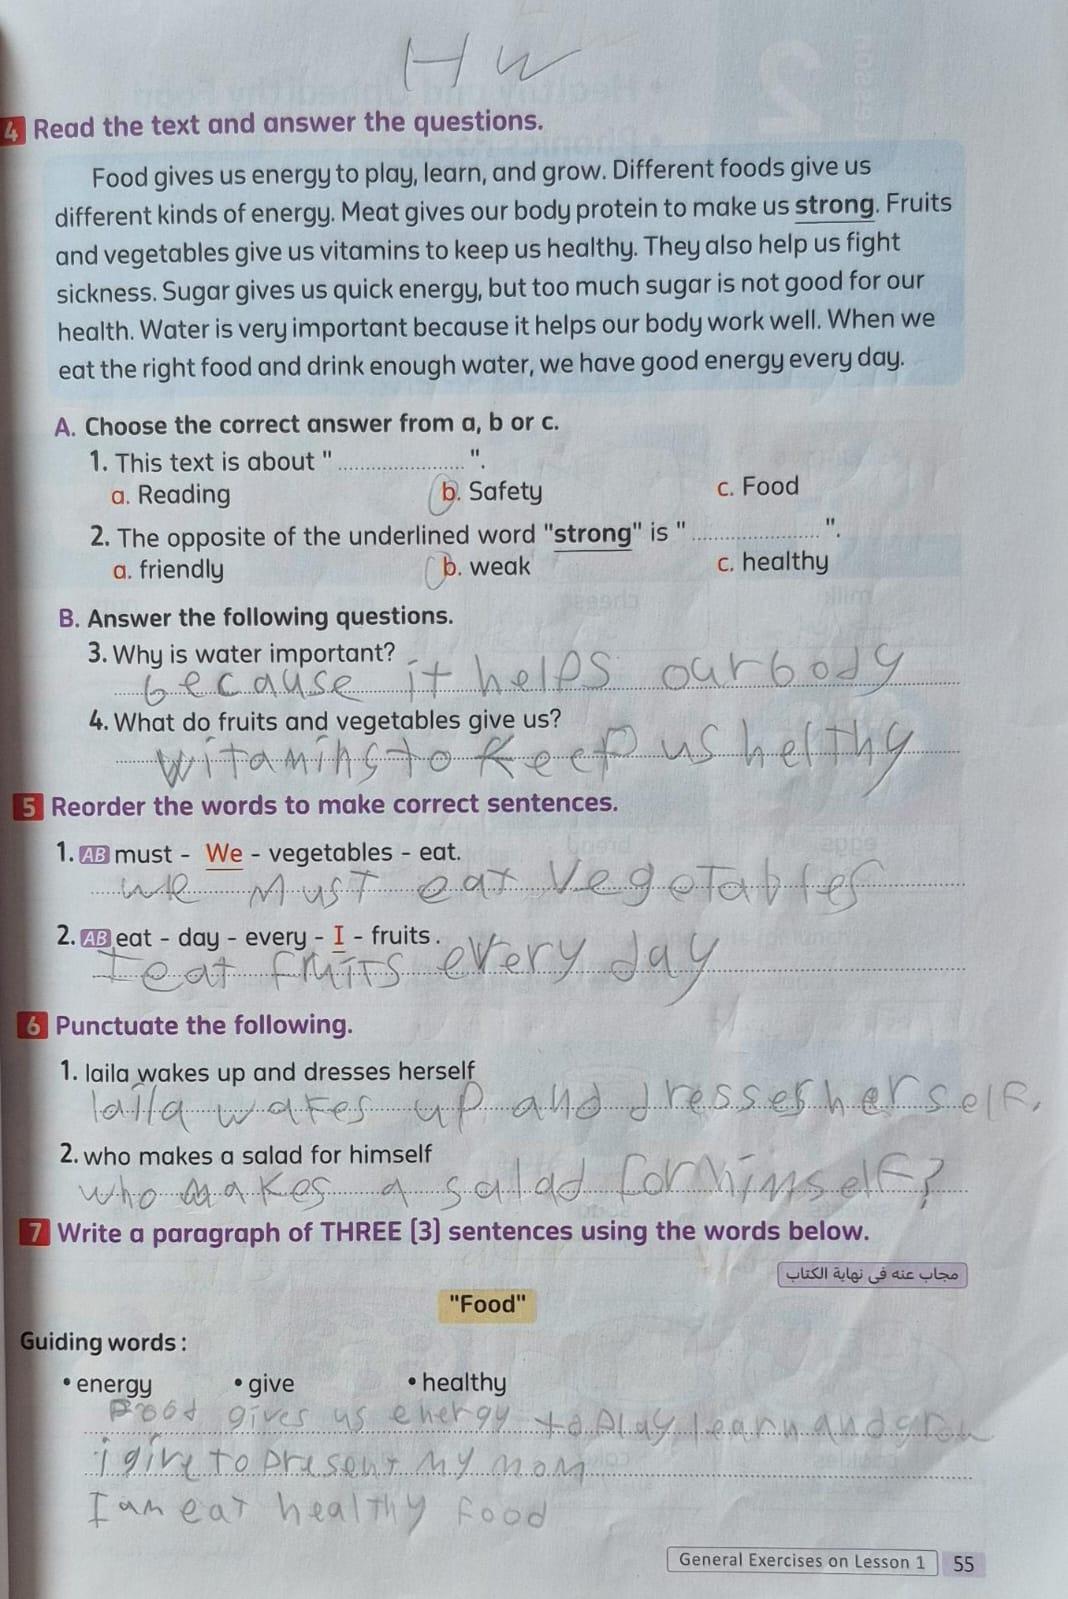 H w
4 Read the text and answer the questions.
Food gives us energy to play, learn, and grow. Different foods give us
different kinds of energy. Meat gives our body protein to make us strong. Fruits
and vegetables give us vitamins to keep us healthy. They also help us fight
sickness. Sugar gives us quick energy, but too much sugar is not good for our
health. Water is very important because it helps our body work well. When we
eat the right food and drink enough water, we have good energy every day.
A. Choose the correct answer from a, b or c.
1. This text is about "....................".
a. Reading b. Safety c. Food
2. The opposite of the underlined word "strong" is "....................".
a. friendly b. weak c. healthy
B. Answer the following questions.
3. Why is water important?
because it helps our body
4. What do fruits and vegetables give us?
witamins to keep us helthy
5 Reorder the words to make correct sentences.
1. AB must - We - vegetables - eat.
we must eat vegetables
2. AB eat - day - every - I - fruits.
I eat fruits every day
6 Punctuate the following.
1. laila wakes up and dresses herself
laila wakes up and dresses herself.
2. who makes a salad for himself
who makes a salad for himself?
7 Write a paragraph of THREE (3) sentences using the words below.
مجاب عنه في نهاية الكتاب
"Food"
Guiding words :
• energy • give • healthy
Food gives us energy to play learn and grow
i give to present my mom
I am eat healthy food
General Exercises on Lesson 1 55